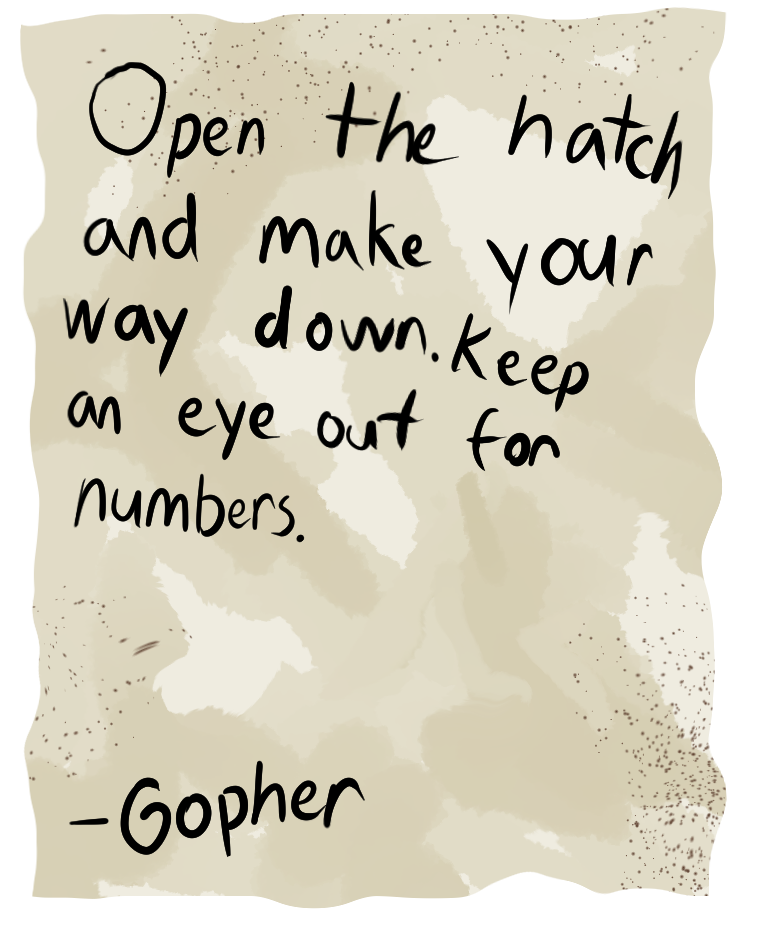 Open the hatch
and make your
way down. Keep
an eye out for
numbers.
-Gopher